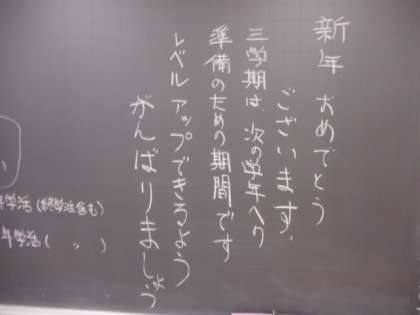 新年 おめでとう
ございます。
三学期は 次の学年への
準備のための期間です
レベルアップできるよう
がんばりましょう
年学活(終学活含む)
年学活( 〃 )